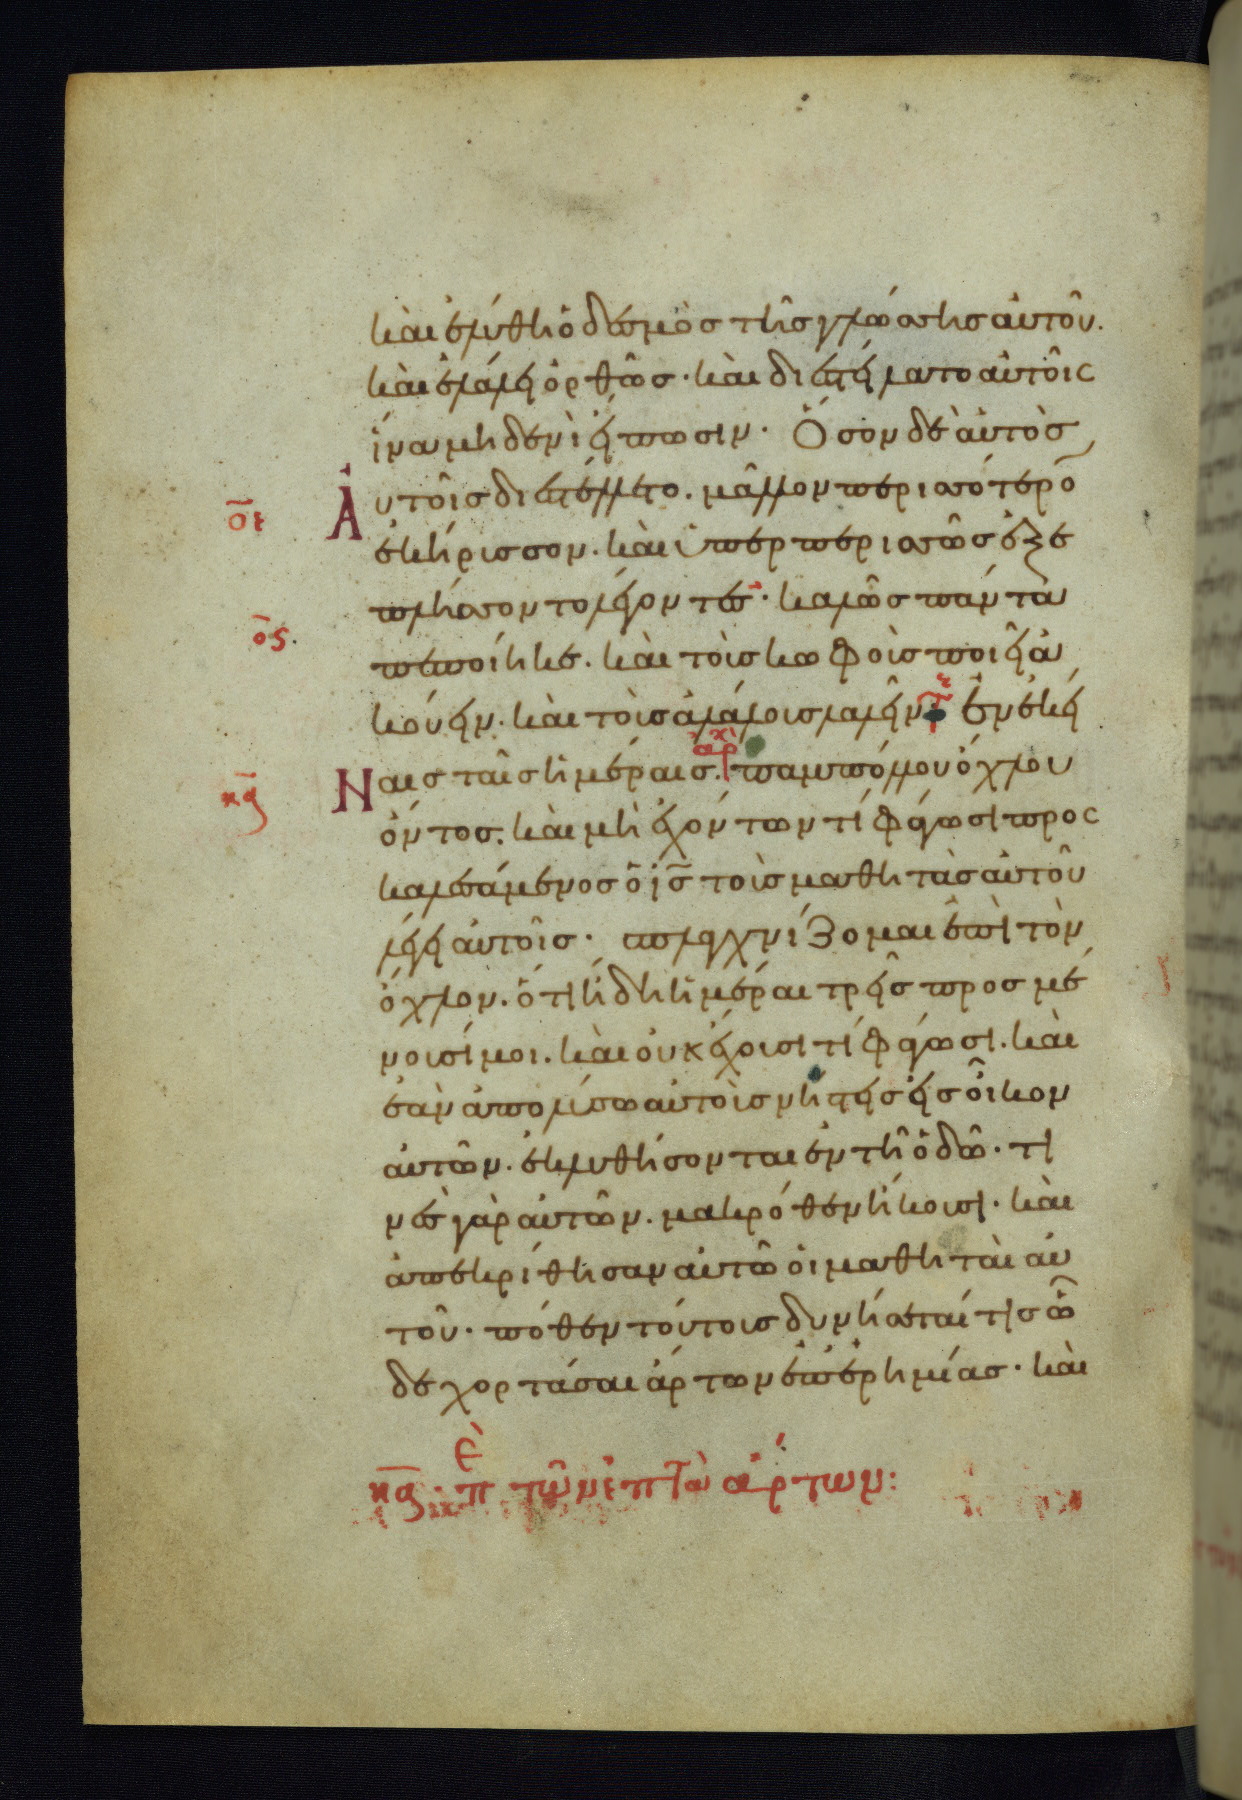 καὶ ἐλύθη ὁ δεσμὸς τῆς γλώσσης αὐτοῦ.
καὶ ἐλάλει ὀρθῶς· καὶ διεστείλατο αὐτοῖς
ἵνα μηδενὶ εἴπωσιν· Ὅσον δὲ αὐτὸς
οε Αὐτοῖς διεστέλλετο. μᾶλλον περισσότερο
ἐκήρισσον. καὶ ὑπερπερισσῶς ἐξε
πλήσσοντο λέγοντες· καλῶς πάντα
ος. πεποίηκε. καὶ τοὺς κωφοὺς ποιεῖ ἀ
κούειν. καὶ τοὺς ἀλάλους λαλεῖν· Ἐν ἐκεί
κα Ναις ταῖς ἡμέραις. ἀρχ παμπόλλου ὄχλου
ὄντος. καὶ μὴ ἐχόντων τί φάγωσι προς
καλεσάμενος ὁ ις τοὺς μαθητὰς αὐτοῦ
λέγει αὐτοῖς· σπλαχνίζομαι ἐπὶ τὸν
ὄχλον. ὅτι ἤδη ἡμέραι τρεῖς προσμέ
νουσί μοι. καὶ οὐκ ἔχουσι τί φάγωσι. καὶ
ἐὰν ἀπολύσω αὐτοὺς νήστεις εἰς οἶκον
αὐτῶν. ἐκλυθήσονται ἐν τῆ ὁδῶ· τι
νὲς γὰρ αὐτῶν. μακρόθεν ἥκουσι· καὶ
ἀπεκρίθησαν αὐτῶ οἱ μαθηταὶ αὐ
τοῦ· πόθεν τούτους δυνήσεταί τις ὧ
δε χορτάσαι ἄρτων ἐπ ἐρημίας· καὶ
κα· Πε τῶν ἑπτὰ ἄρτων: